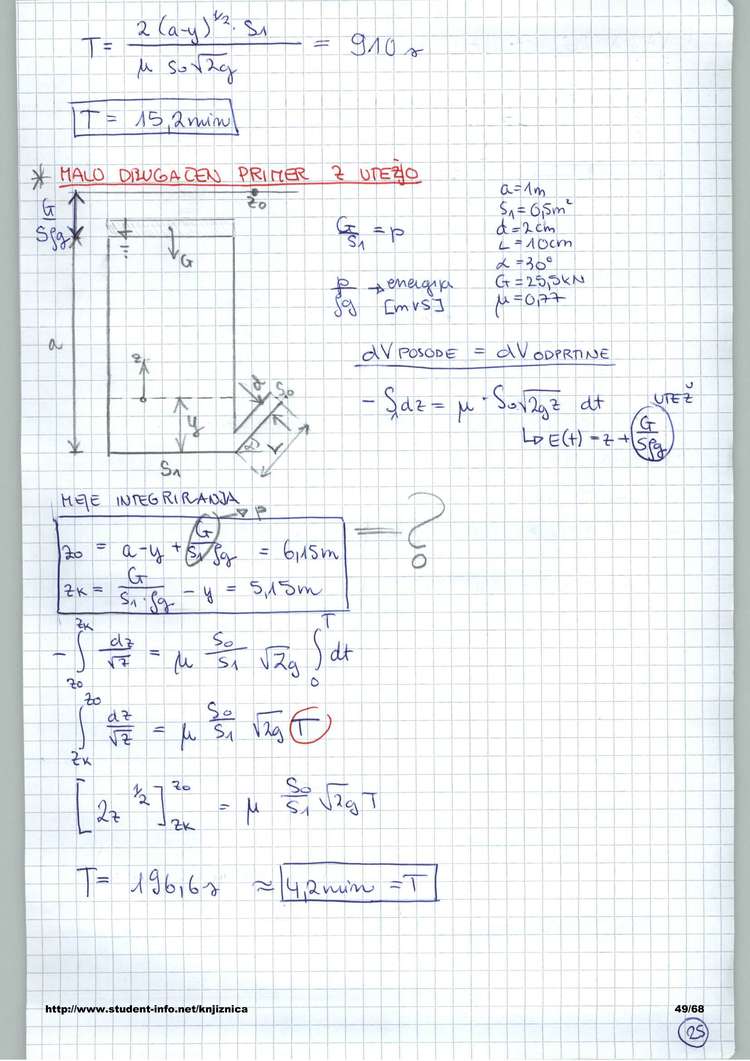 T = 2 (a-y)^1/2 · S1 / μ S0 √2g = 910 s
T = 15,2 min
* MALO DRUGAČEN PRIMER Z UTEŽJO
G / Sρg
z0
G
a
z
y
d
S0
α
L
S1
G / S1 = p
p / ρg → energija [mVS]
a = 1m
S1 = 0,5m²
d = 2cm
L = 10cm
α = 30°
G = 25,5kN
μ = 0,77
dV POSODE = dV ODPRTINE
- S1 dz = μ · S0 √2gz dt
UTEŽ
↳ E(t) = z + G / Sρg
MEJE INTEGRIRANJA
→ p
z0 = a - y + G / S1 ρg = 6,15m
zK = G / S1 · ρg - y = 5,15m
= ?
- ∫ z0 zK dz / √z = μ S0 / S1 √2g ∫ 0 T dt
∫ zK z0 dz / √z = μ S0 / S1 √2g T
[2z^1/2] zK z0 = μ S0 / S1 √2g T
T = 196,6 s ≈ 4,2 min = T
http://www.student-info.net/knjiznica
49/68
25